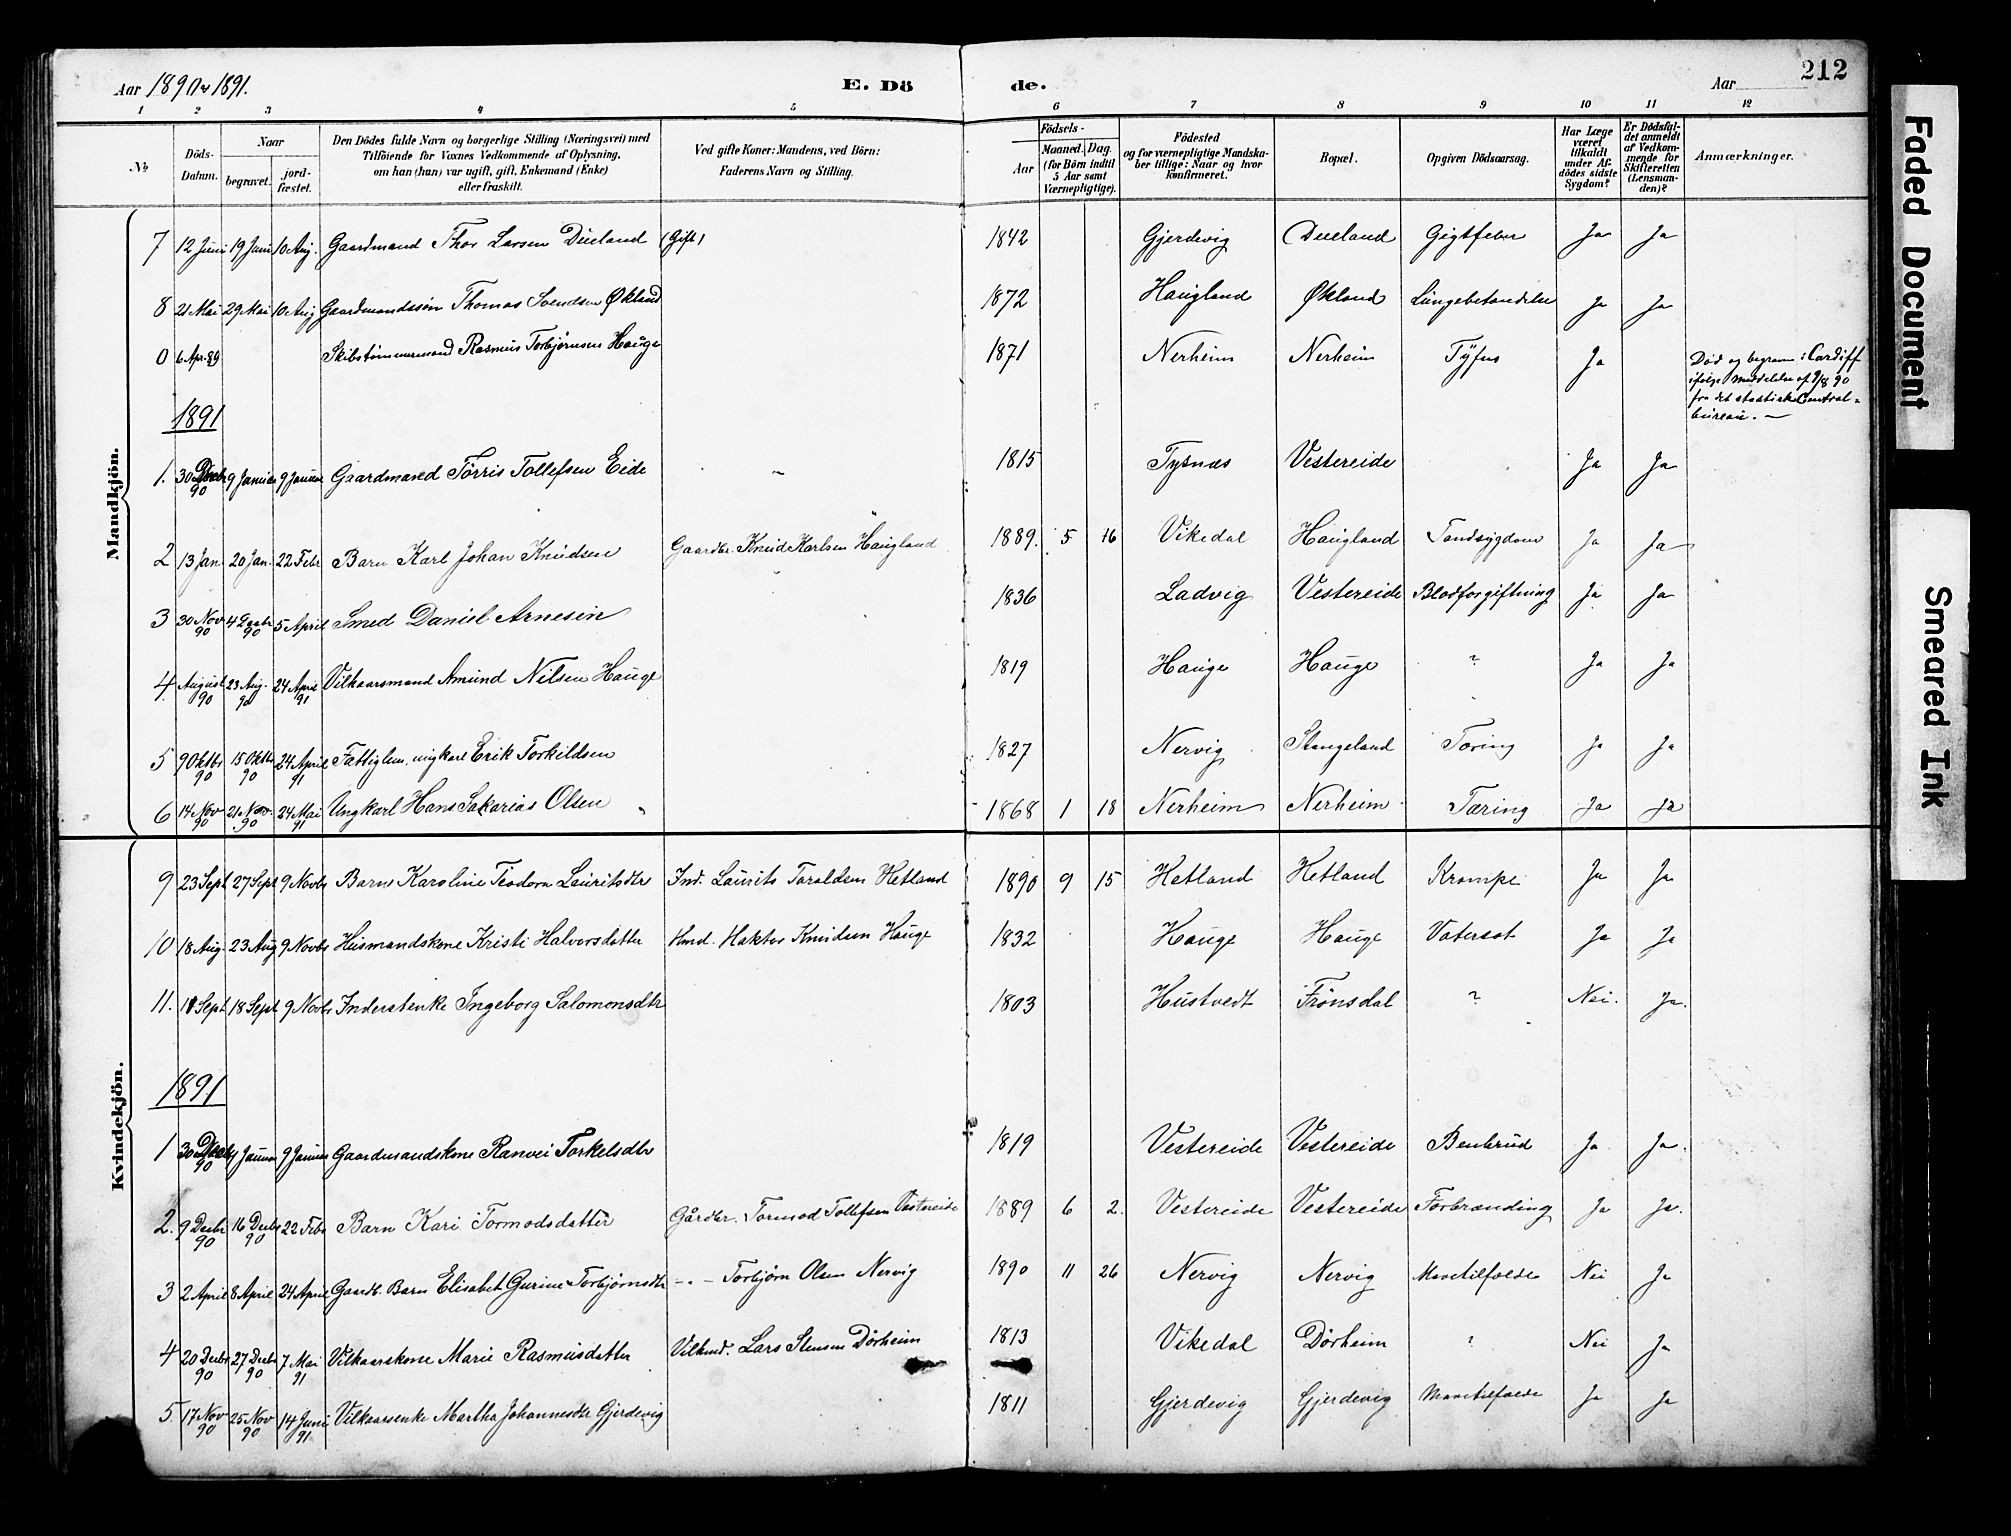 Aar 1890 & 1891.
E. Dö
de.
Aar
212
1 2 3 4 5 6 7 8 9 10 11 12
No.
Döds-Datum.
Naar
begravet.
jord-fæstet.
Den Dödes fulde Navn og borgerlige Stilling (Næringsvei) med
Tilföiende for Voxnes Vedkommende af Oplysning,
om han (hun) var ugift, gift, Enkemand (Enke)
eller fraskilt.
Ved gifte Koner: Mandens, ved Börn:
Faderens Navn og Stilling.
Födsels-
Aar
Maaned. Dag.
(for Börn indtil
5 Aar samt
Værnepligtige).
Födested
og for værnepligtige Mandska-
ber tillige: Naar og hvor
konfirmeret.
Bopæl.
Opgiven Dödsaarsag.
Har Læge
været
tilkaldt
under Af-
dödes sidste
Sygdom?
Er Dödsfal-
det anmeldt
af Vedkom-
mende for
Skifteretten
(Lensman-
den)?
Anmærkninger.
Mandkjön.
7 12 Juni 19 Juni 10 Aug. Gaardmand Thor Larsen Dueland (Gift) 1842 Gjerdevig Dueland Gigtfeber Ja Ja
8 21 Mai 29 Mai 10 Aug Gaardmandssön Thomas Svendsen Økland 1872 Haugland Økland Lungebetændelse Ja Ja
0 6 Apr. 89 Skibstømmermand Rasmus Torbjørnsen Hauge 1871 Nerheim Nerheim Tyfus Ja
Død og begraven i Cardiff
ifølge Meddelelse af 9/8 90
fra det statistiske Central-
bureau. —
1891
1. 30 Decbr 90 9 Januar 9 Januar Gaardmand Tørris Tollefsen Eide 1815 Tysnæs Vestereide Ja Ja
2 13 Jan. 20 Jan. 22 Febr Barn Karl Johan Knudsen Gaardbr. Knud Karlsen Haugland 1889. 5 16 Vikedal Haugland Tandsygdom Ja Ja
3 30 Nov 90 4 Decbr 90 5 April Smed Daniel Arnesen 1836 Ladvig Vestereide Blodforgiftning Ja Ja
4. August 90 23 Aug. 90 24 April 91 Vilkaarsmand Amund Nilsen Hauge 1819 Hauge Hauge ? Ja Ja
5 9 Oktbr 90 15 Oktbr 90 24 April 91 Fattiglem, ungkarl Erik Torkildsen 1827 Nervig Stangeland Tæring Ja Ja
6 14 Nov 90 21 Nov. 90 24 Mai 91 Ungkarl Hans Sakarias Olsen 1868 1 18 Nerheim Nerheim Tæring Ja Ja
Kvindekjön.
9 23 Sept 27 Sept 9 Novbr Barn Karoline Teodora Lauritsdtr Ind. Laurits Taraldsen Hetland 1890 9 15 Hetland Hetland Krampe Ja Ja
10 18 Aug. 23 Aug 9 Novbr Husmandskone Kristi Halvorsdatter Hmd. Haktor Knudsen Hauge 1832 Hauge Hauge Vatersot Ja Ja
11. 11 Sept 18 Sept 9 Novbr Inderstenke Ingeborg Salomonsdtr 1803 Hustvedt Frönsdal ? Nei. Ja.
1891
1 30 Decbr 90 9 Januar 9 Januar Gaardmandskone Ranvei Torkelsdtr 1819 Vestereide Vestereide Benbrud Ja Ja.
2. 9 Decbr 90 16 Decbr 90 22 Febr Barn Kari Tormodsdatter Gårdbr. Tormod Tollefsen Vestereide 1889 6 2. Vestereide Vestereide Forbrænding Ja Ja.
3 2 April 8 April 24 April Gaardb. Barn Elisabet Gurine Torbjørnsdtr -"- Torbjørn Olsen Nervig 1890 11 26 Nervig Nervig Mavetilfælde Nei Ja
4 20 Decbr 90 27 Decbr 90 7 Mai 91 Vilkaarskone Marie Rasmusdatter Vilkmd. Lars Stensen Dörheim 1813 Vikedal Dörheim ? Nei Ja
5. 17 Nov 90 25 Nov 90 14 Juni 91 Vilkaarsenke Martha Johannesdtr Gjerdevig 1811 Gjerdevig Gjerdevig Mavetilfælde Ja Ja
Faded Document
Smeared Ink